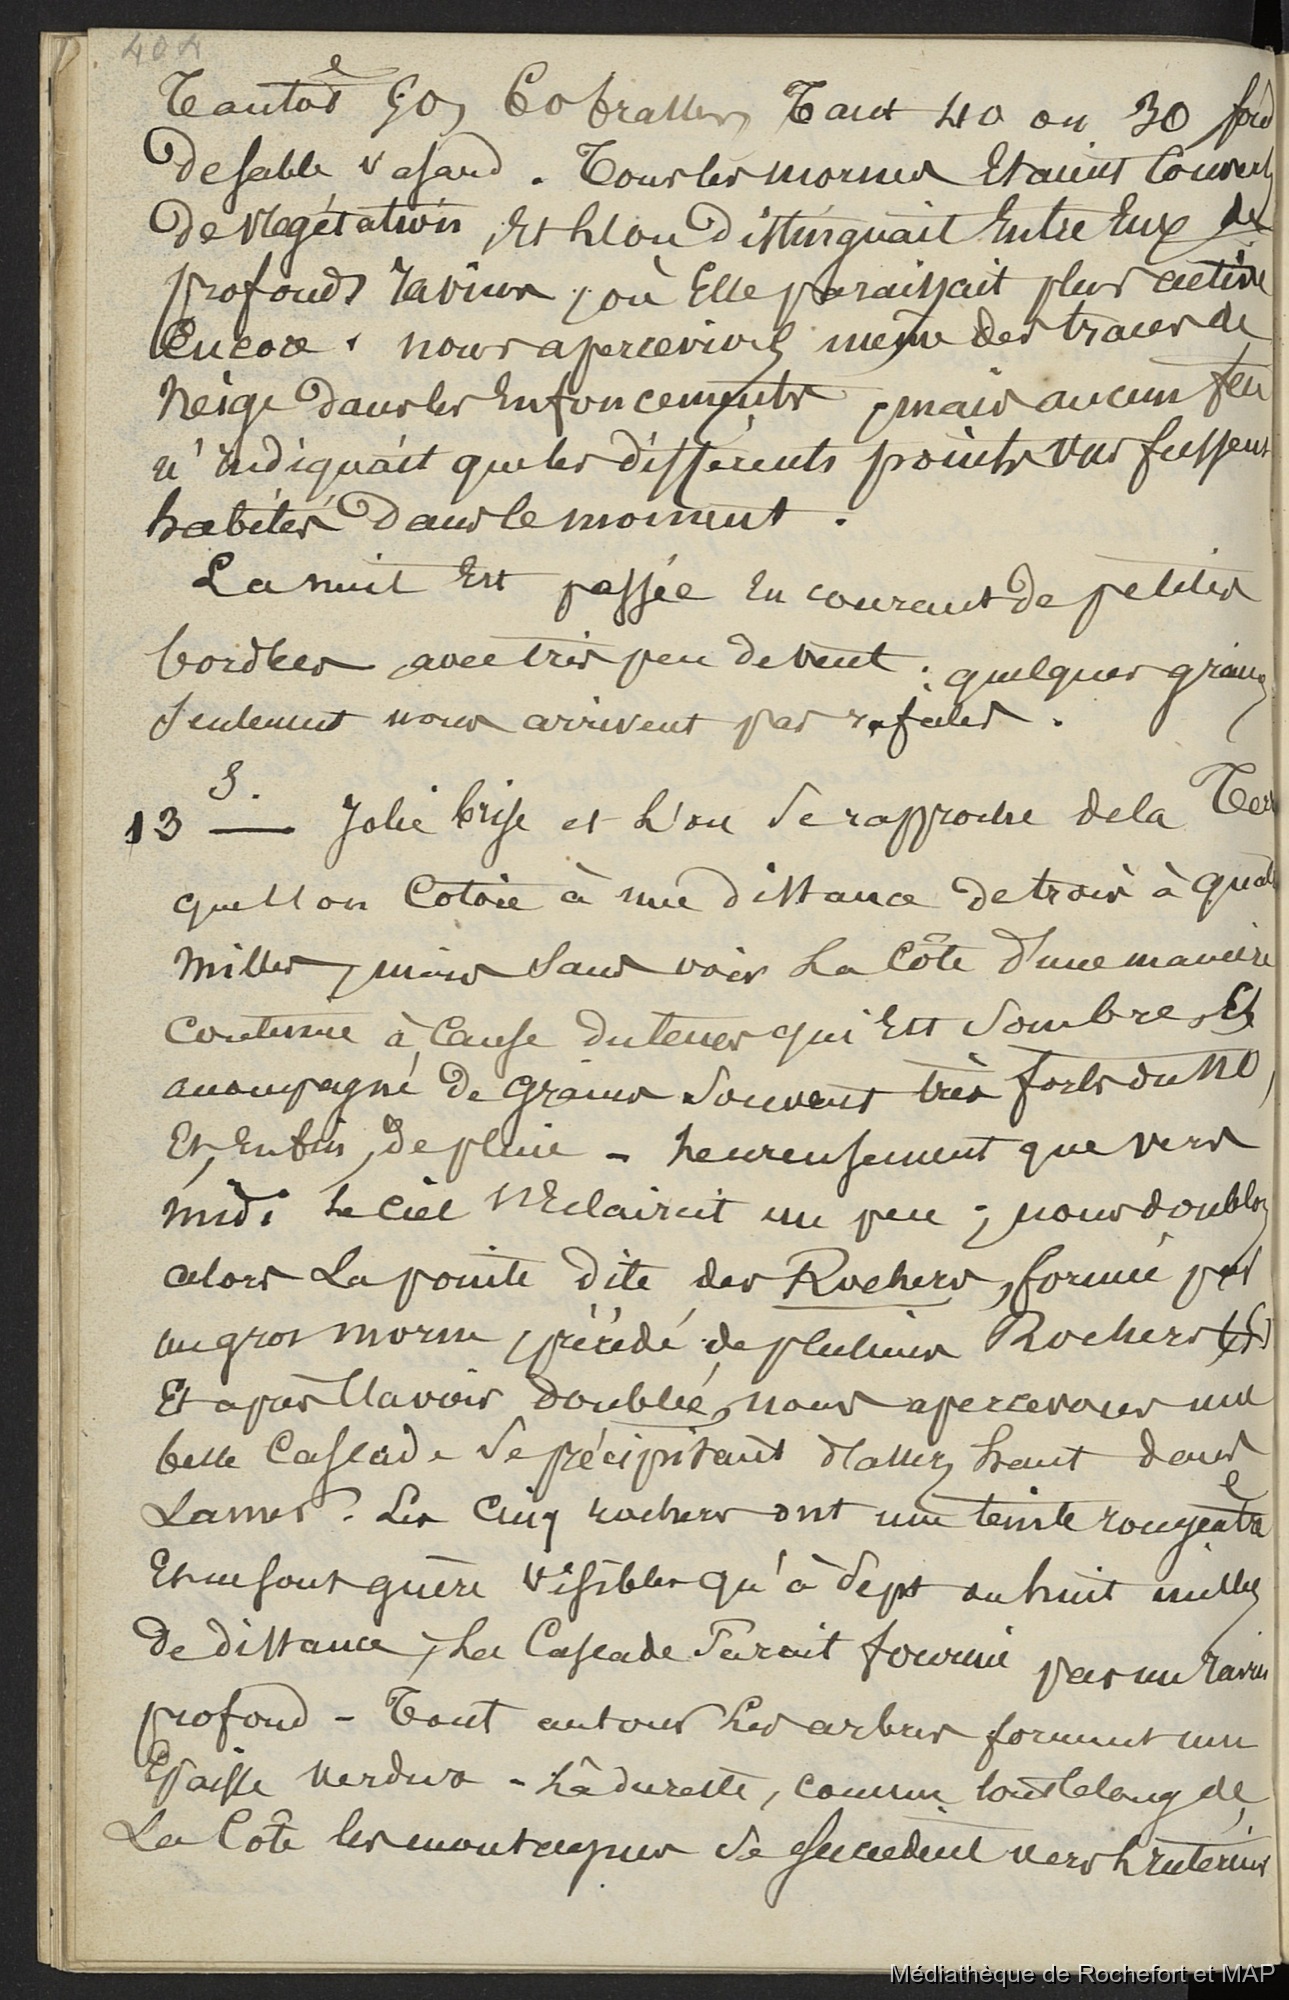 404
Tantôt 50, 60 brasses, Tant 40 ou 30 fond
de sable vasard. Tous les mornes Etaient Couverts
de végétation, Et l'on distinguait Entre Eux de
profonds ravins, où Elle paraissait plus active
Encore. nous apercevions même des traces de
Neige dans les Enfoncements, mais aucun feu
n'indiquait que les différents points vus fussent
habités dans le moment.
La nuit Est passée En courant de petites
bordées avec très peu de vent; quelques grains
seulement nous arrivent par rafales.
13 S. — Jolie brise et l'on se rapproche de la Terre
que l'on Cotoie à une distance de trois à quatre
Milles, mais sans voir La Côte d'une manière
Continue à Cause du tems qui Est sombre, Et
accompagné de grains souvent très forts du NO,
Et Enfin, de pluie - heureusement que vers
midi le Ciel s'Eclaircit un peu; nous doublons
alors La pointe dite des Rochers, formée par
un gros morne, précédé de plusieurs Rochers (5)
Et après l'avoir doublée, nous apercevons une
belle Cascade se précipitant d'assez haut dans
Lames. Les Cinq rochers ont une teinte rougeâtre
Et ne sont guère visibles qu'à sept ou huit milles
de distance; La Cascade Parait fournie par un ravin
profond - Tout autour Les arbres forment une
Epaisse verdure - Là du reste, comme tout le long de
La Côte les montagnes se succèdent vers l'intérieur
Médiathèque de Rochefort et MAP